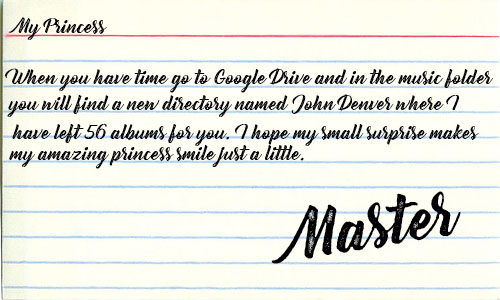 My Princess
When you have time go to Google Drive and in the music folder
you will find a new directory named John Denver where I
have left 56 albums for you. I hope my small surprise makes
my amazing princess smile just a little.
Master